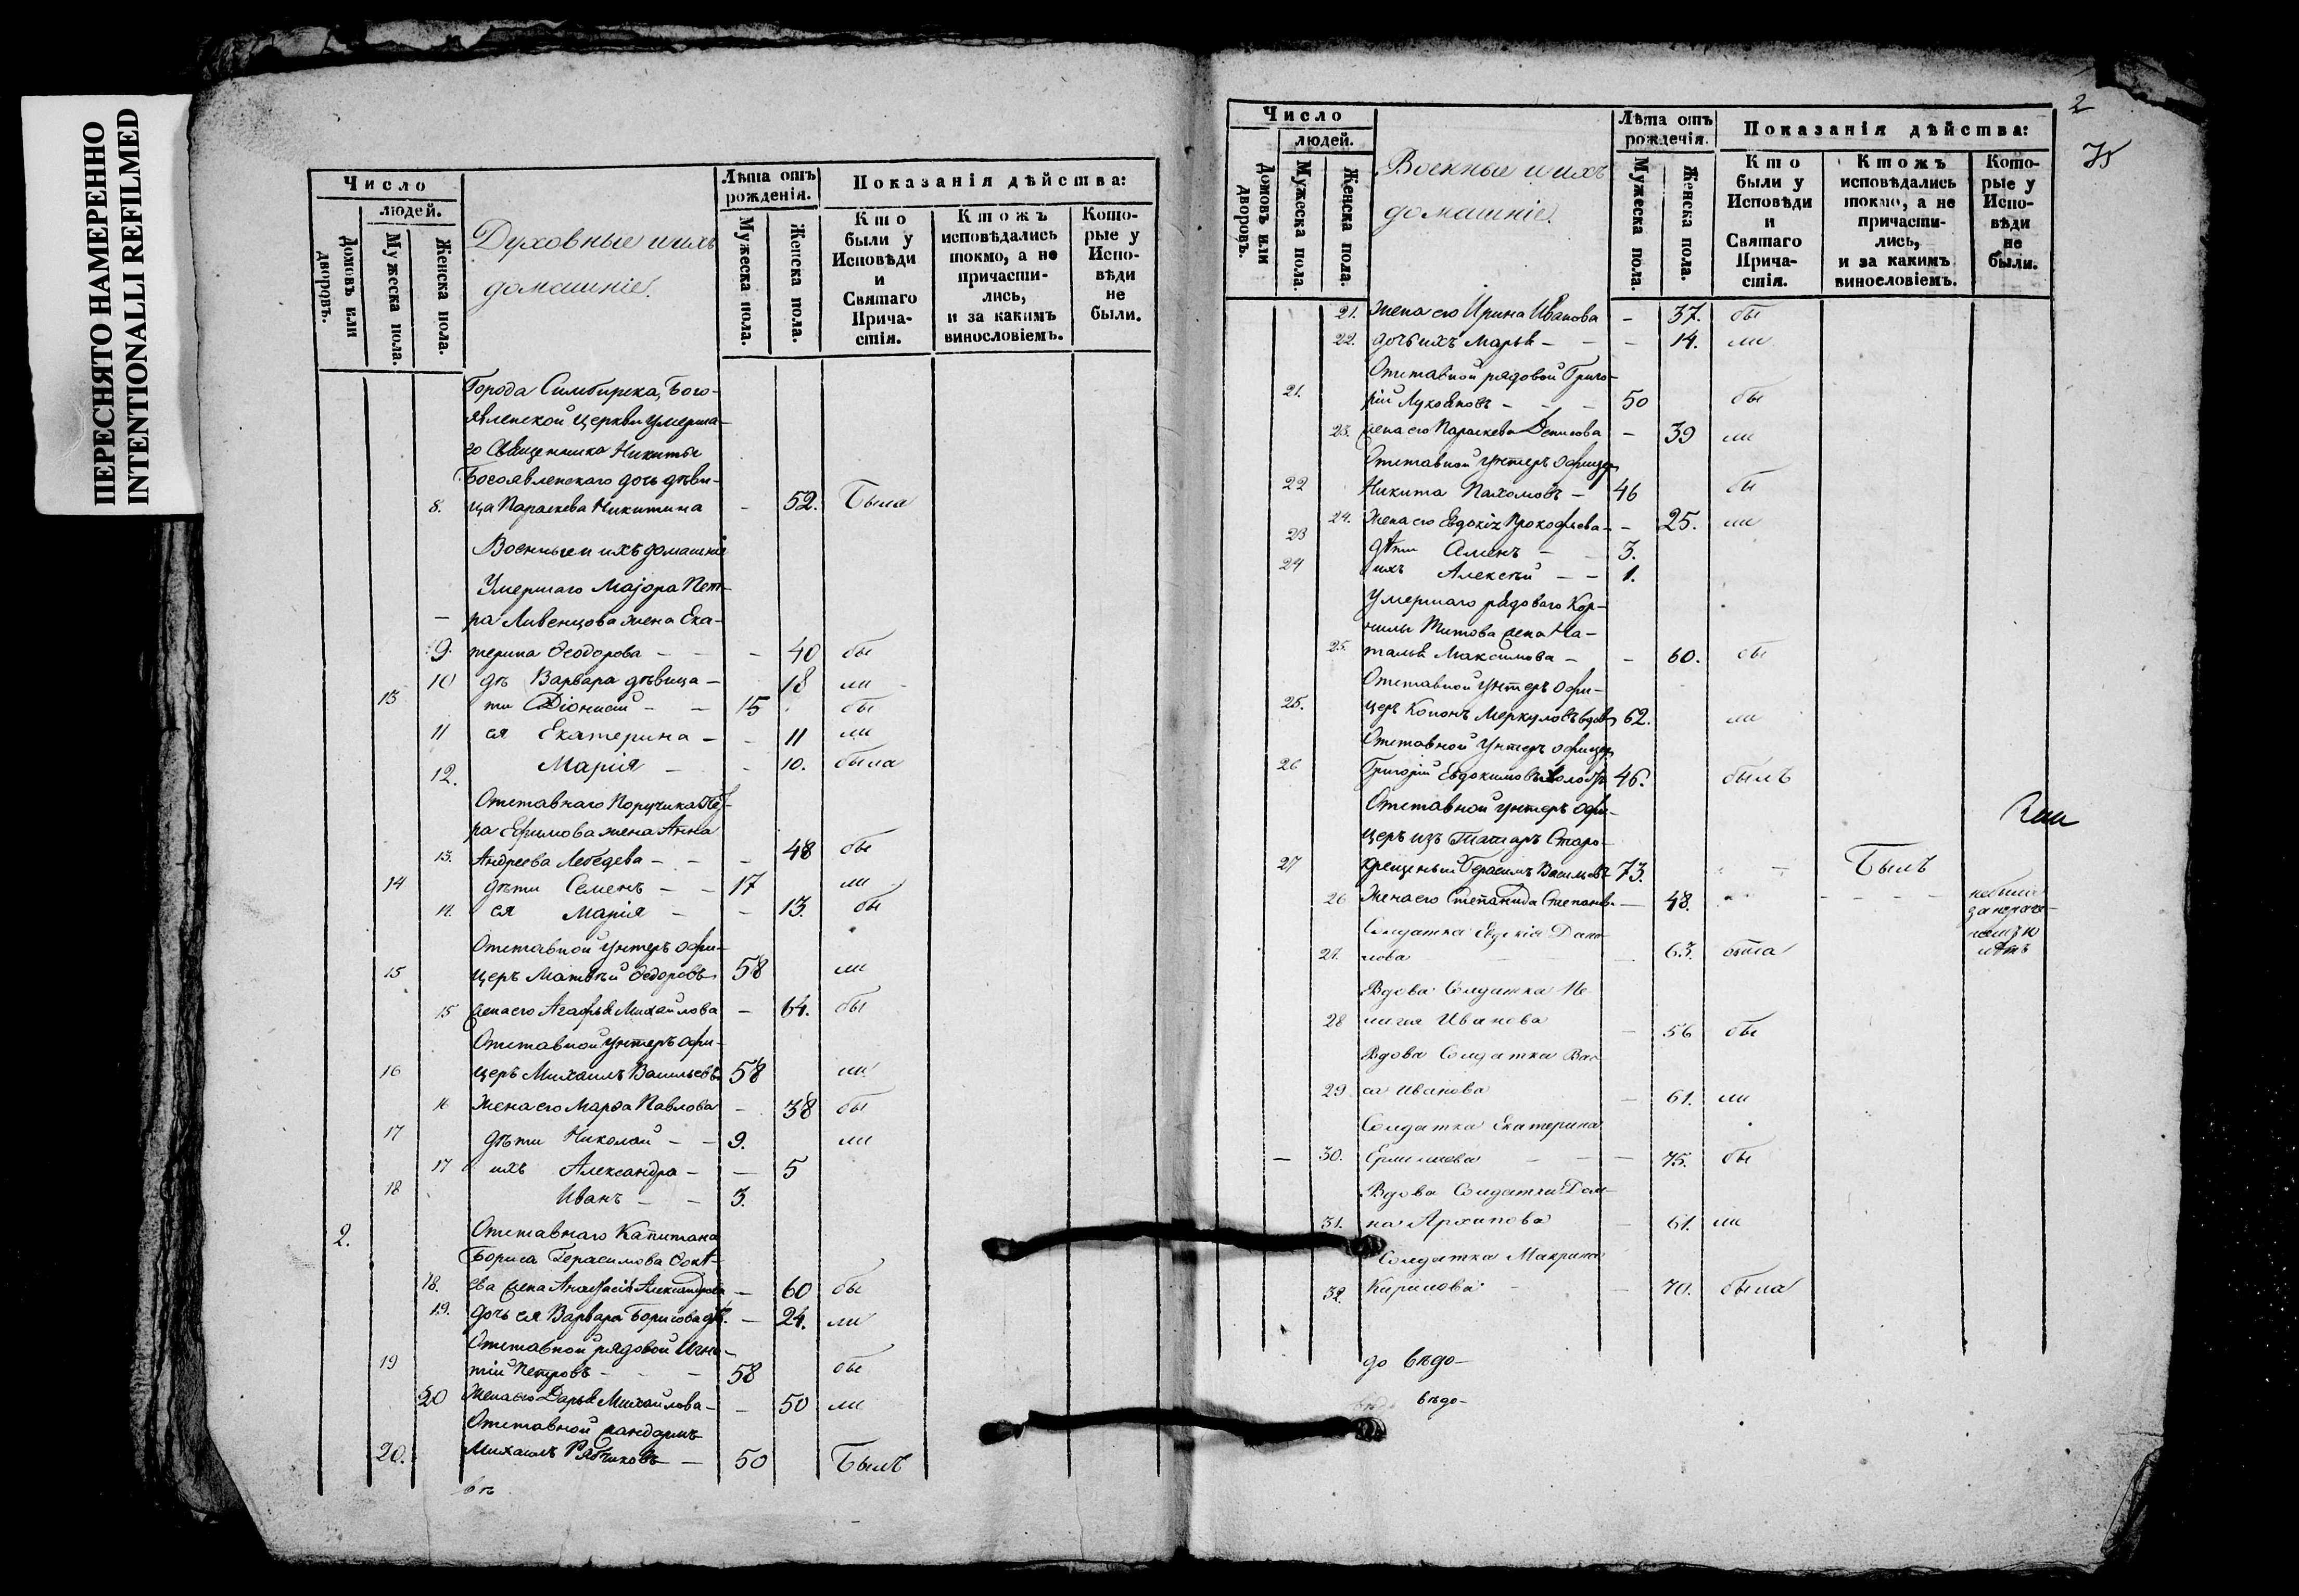 ПЕРЕСНЯТО НАМЕРЕННО
INTENTIONALLI REFILMED
Число
людей.
Домовъ или дворовъ.
Мужеска пола.
Женска пола.
Духовные и ихъ
домашніе.
Лѣта отъ рожденія.
Мужеска пола.
Женска пола.
Показанія дѣйства:
Кто были у Исповѣди и Святаго Прича-стія.
Ктожъ исповѣдались токмо, а не причасти-лись, и за какимъ винословіемъ.
Кото-рые у Испо-вѣди не были.
Города Симбирска, Бого-
явленской церкви умерша-
го Священника Никиты
Богоявленскаго дочь дѣви-
8. ца Параскева Никитина - 52. Была
Военные и ихъ домашніе
Умершаго Маіора Пет-
ра Ливенцова жена Ека-
9. терина Ѳеодорова - - - 40 бы
10 дѣ Варвара дѣвица - 18 ли
13 ти Діонисій - - 15 бы
11 ея Екатерина - - 11 ли
12. Марія - - 10. была
Отставнаго Поручика Пет-
ра Ефимова жена Анна
13. Андреева Лебедева - - - 48 бы
14 дѣти Семенъ - - 17 ли
14. ея Марія - - 13. бы
Отставной унтеръ офи-
15 церъ Матвѣй Ѳедоровъ 58 ли
15 жена его Агафья Михайлова - 64. бы
Отставной унтеръ офи-
16 церъ Михаилъ Васильевъ 58 ли
16 жена его Марѳа Павлова - 38 бы
17 дѣти Николай - - 9. ли
17 ихъ Александра - - 5
18 Иванъ - - 3.
2. Отставнаго Капитана
Бориса Герасимова
18. жена Анастасія Александрова - 60 бы
19. дочь ея Варвара Борисова дѣ. - 24. ли
Отставной рядовой Игна-
19 тій Петровъ - - - 58 бы
20 жена его Дарья Михайлова - - 50 ли
Отставной жандармъ
20. Михаилъ Рябчиковъ - 50 Былъ
вѣ
2
Число
людей.
Домовъ или дворовъ.
Мужеска пола.
Женска пола.
Военные и ихъ
домашніе.
Лѣта отъ рожденія.
Мужеска пола.
Женска пола.
Показанія дѣйства:
Кто были у Исповѣди и Святаго Прича-стія.
Ктожъ исповѣдались токмо, а не причасти-лись, и за какимъ винословіемъ.
Кото-рые у Испо-вѣди не были.
21. жена его Ирина Иванова - 37. бы
22. дочь ихъ Марья - - - 14. ли
Отставной рядовой Григо-
21. рій Лукояновъ - - - 50 бы
23. жена его Параскева Денисова - 39 ли
Отставной унтеръ офицеръ
22 Никита Пахомовъ - 46 бы
24. жена его Евдокія Прокофьева - - 25. ли
23 дѣти - - 3.
24 ихъ Алексѣй - - 1.
Умершаго рядоваго Кор-
нилы Титова жена На-
25. талья Максимова - - 60. бы
Отставной унтеръ офи-
25. церъ Кононъ Меркуловъ вдовъ 62. ли
Отставной унтеръ офицеръ
26 Григорій Евдокимовъ холостъ 46. былъ
Отставной унтеръ офи-
церъ изъ Татаръ Старо-
27 крещеный Герасимъ Васильевъ 73. - Былъ
26 жена его Степанида Степанов. - 48. - - - - не была
Солдатка Евдокія Дани-
27. лова - 63. была
Вдова Солдатка Пе-
28 лагея Иванова - 56 бы
Вдова Солдатка Вас-
29 са Иванова - 61. ли
Солдатка Екатерина
- 30. Ермилаева - - - 75. бы
Вдова Солдатка Дом-
31. на Архипова - 61. ли
Солдатка Макрина
32. Кирилова - - 70. была
до вѣдо-
вѣдо-